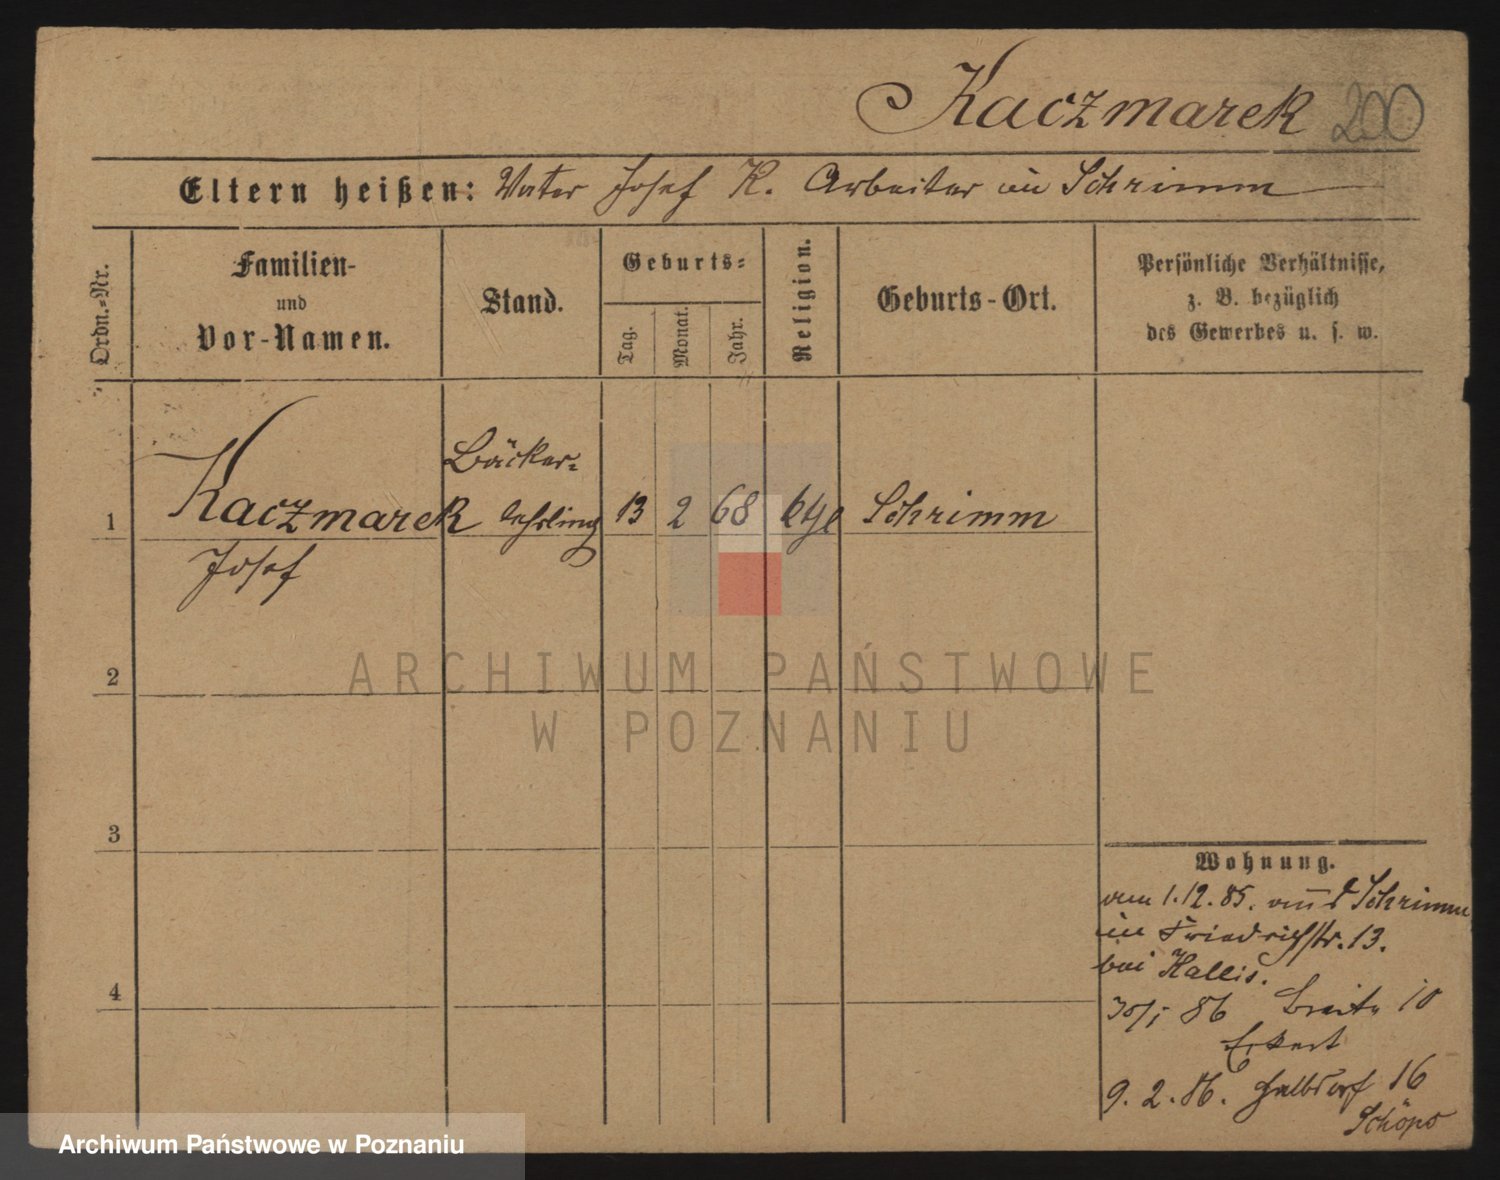 Kaczmarek 200
Eltern heißen: Vater Josef K. Arbeiter in Schrimm
Ordn.-Nr.
Familien-
und
Vor-Namen.
Stand.
Geburts-
Tag.
Monat.
Jahr.
Religion.
Geburts-Ort.
Persönliche Verhältnisse,
z. B. bezüglich
des Gewerbes u. s. w.
Bäcker-
1 Kaczmarek lehrling 13 2 68 Schrimm
Josef
2
ARCHIWUM PAŃSTWOWE
W POZNANIU
3
Wohnung.
1.12.85. Schrimm
in Friedrichstr. 13.
bei Hallis.
4
86 Breite 10
Eckert
9. 2. 86. Halbdorf 16
Archiwum Państwowe w Poznaniu